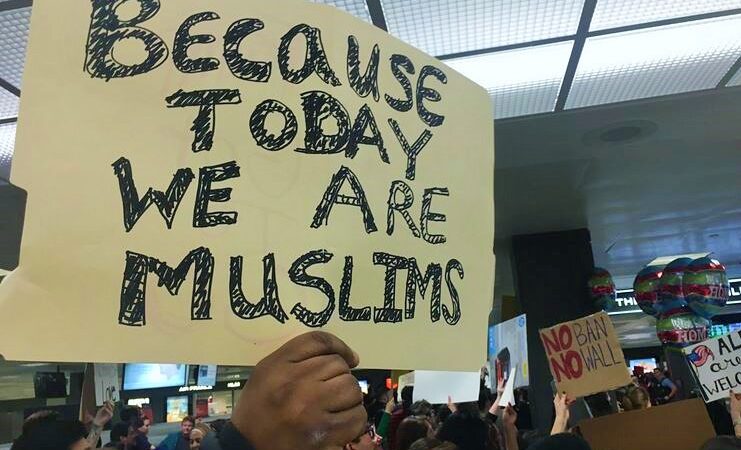 BECAUSE
TODAY
WE ARE
MUSLIMS
NO BAN
NO WALL
ALL
are
WELCO
THE
HOME